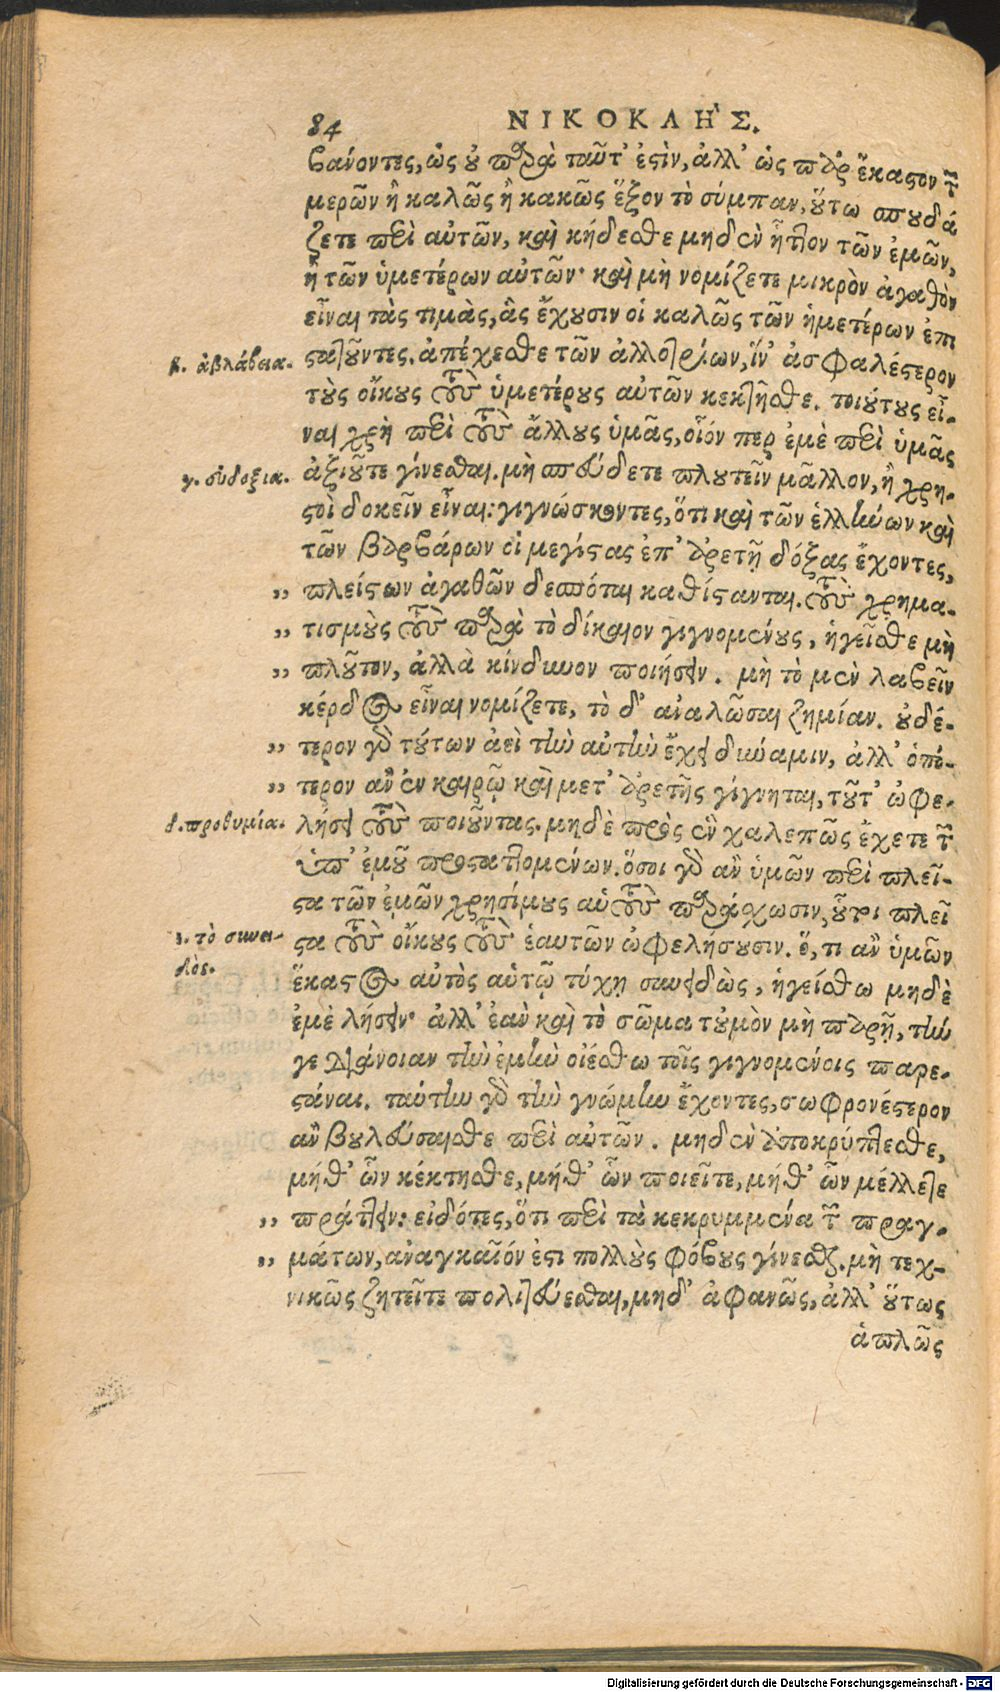 84 ΝΙΚΟΚΛΗ῀Σ.
βαίνοντες, ὡς οὐ παρὰ ταῦτ' ἐστὶν, ἀλλ' ὡς παρ' ἕκαστον τῶν
μερῶν ἢ καλῶς ἢ κακῶς ἕξον τὸ σύμπαν, οὕτω σπουδά
ζετε περὶ αὐτῶν, καὶ κήδεσθε μηδὲν ἧττον τῶν ἐμῶν,
ἢ τῶν ὑμετέρων αὐτῶν· καὶ μὴ νομίζετε μικρὸν ἀγαθὸν
εἶναι τὰς τιμὰς, ἃς ἔχουσιν οἱ καλῶς τῶν ἡμετέρων ἐπι
β. ἀβλάβεια.
στατοῦντες. ἀπέχεσθε τῶν ἀλλοτρίων, ἵν' ἀσφαλέστερον
τοὺς οἴκους τοὺς ὑμετέρους αὐτῶν κεκτῆσθε. τοιούτους εἶ-
ναι χρὴ περὶ τοὺς ἄλλους ὑμᾶς, οἷόν περ ἐμὲ περὶ ὑμᾶς
γ. εὐδοξία.
ἀξιοῦτε γίνεσθαι. μὴ σπεύδετε πλουτεῖν μᾶλλον, ἢ χρη-
στοὶ δοκεῖν εἶναι: γιγνώσκοντες, ὅτι καὶ τῶν ἑλλήνων καὶ
τῶν βαρβάρων οἱ μεγίστας ἐπ' ἀρετῇ δόξας ἔχοντες,
" πλείστων ἀγαθῶν δεσπόται καθίστανται. τοὺς χρημα-
" τισμοὺς τοὺς παρὰ τὸ δίκαιον γιγνομένους, ἡγεῖσθε μὴ
" πλοῦτον, ἀλλὰ κίνδυνον ποιήσειν. μὴ τὸ μὲν λαβεῖν
κέρδος εἶναι νομίζετε, τὸ δ' ἀναλῶσαι ζημίαν. οὐδέ-
" τερον γὰρ τούτων ἀεὶ τὴν αὐτὴν ἔχει δύναμιν, ἀλλ' ὁπό-
" τερον ἂν ἐν καιρῷ καὶ μετ' ἀρετῆς γίγνηται, τοῦτ' ὠφε-
δ. προθυμία.
λήσει τοὺς ποιοῦντας. μηδὲ πρὸς ἓν χαλεπῶς ἔχετε τῶν
ὑπ' ἐμοῦ προσταττομένων. ὅσοι γὰρ ἂν ὑμῶν περὶ πλεῖ-
στα τῶν ἐμῶν χρησίμους αὑτοὺς παράσχωσιν, οὗτοι πλεῖ
ε. τὸ συνει-
δός.
στα τοὺς οἴκους τοὺς ἑαυτῶν ὠφελήσουσιν. ὅ, τι ἂν ὑμῶν
ἕκαστος αὐτὸς αὑτῷ τύχῃ συνειδὼς, ἡγείσθω μηδὲ
ἐμὲ λήσειν· ἀλλ' ἐὰν καὶ τὸ σῶμα τοὐμὸν μὴ παρῇ, τήν
γε διάνοιαν τὴν ἐμὴν οἰέσθω τοῖς γιγνομένοις παρε-
στάναι. ταύτην γὰρ τὴν γνώμην ἔχοντες, σωφρονέστερον
ἂν βουλεύσαισθε περὶ αὐτῶν. μηδὲν ἀποκρύπτεσθε,
μήθ' ὧν κέκτησθε, μήθ' ὧν ποιεῖτε, μήθ' ὧν μέλλετε
" πράττειν: εἰδότες, ὅτι περὶ τὰ κεκρυμμένα τῶν πραγ-
" μάτων, ἀναγκαῖόν ἐστι πολλοὺς φόβους γίνεσθαι. μὴ τεχ-
νικῶς ζητεῖτε πολιτεύεσθαι, μηδ' ἀφανῶς, ἀλλ' οὕτως
ἁπλῶς
Digitalisierung gefördert durch die Deutsche Forschungsgemeinschaft - DFG